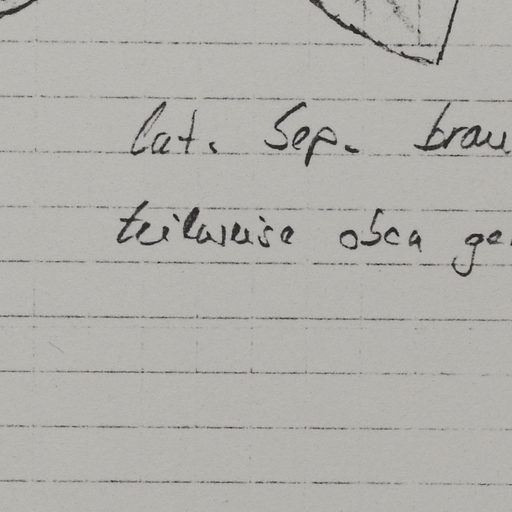 lat. Sep. brau
teilweise oben ge